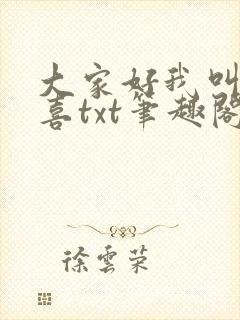 大家好我叫
喜txt筆趣閣
徐雲荣